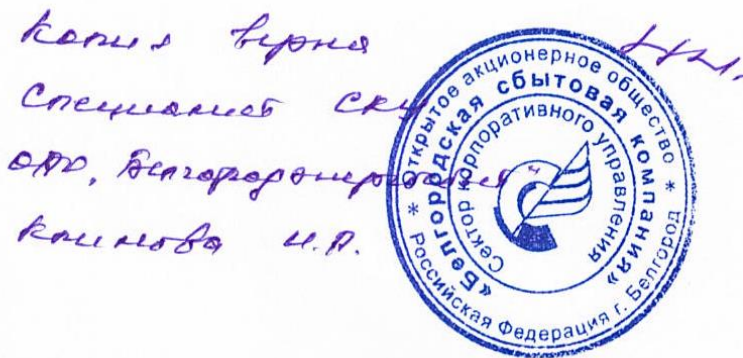 Копия верна
Специалист СКУ
ОАО "Белгородэнергосбыт"
Климова И.А.
* Открытое акционерное общество *
Российская Федерация г. Белгород
«Белгородская сбытовая компания»
Сектор корпоративного управления